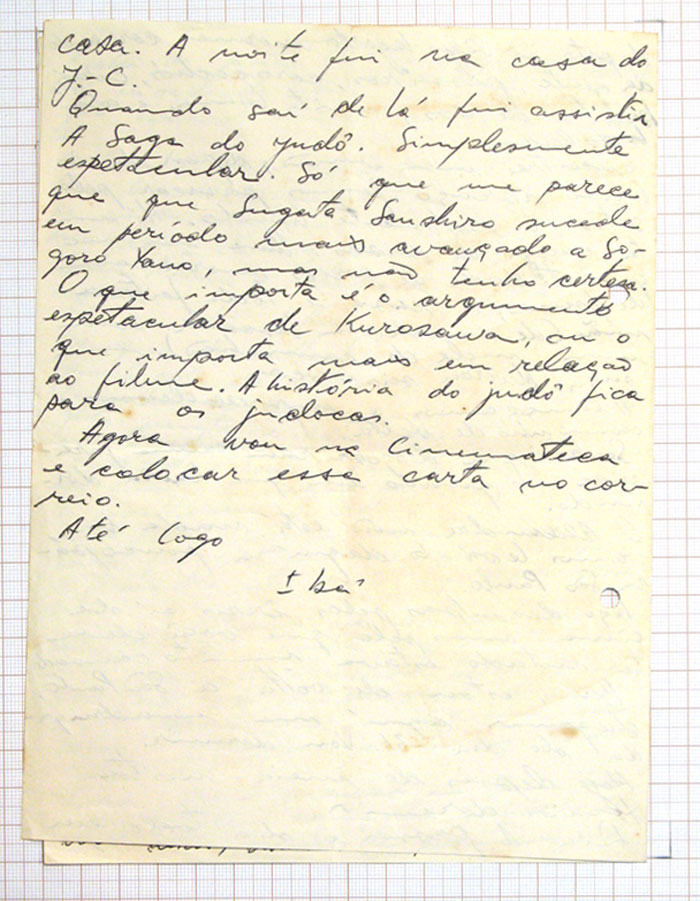 casa. A noite fui na casa do
J.-C.
Quando saí de lá fui assistir
A Saga do judô. Simplesmente
espetacular. Só que me parece
que que Sugata Sanshiro sucede
em período mais avançado a So-
goro Yano, mas não tenho certeza.
O que importa é o argumento
espetacular de Kurosawa, ou o
que importa mais em relação
ao filme. A história do judô fica
para os judocas.
Agora vou na Cinemateca
e colocar essa carta no cor-
reio.
Até logo